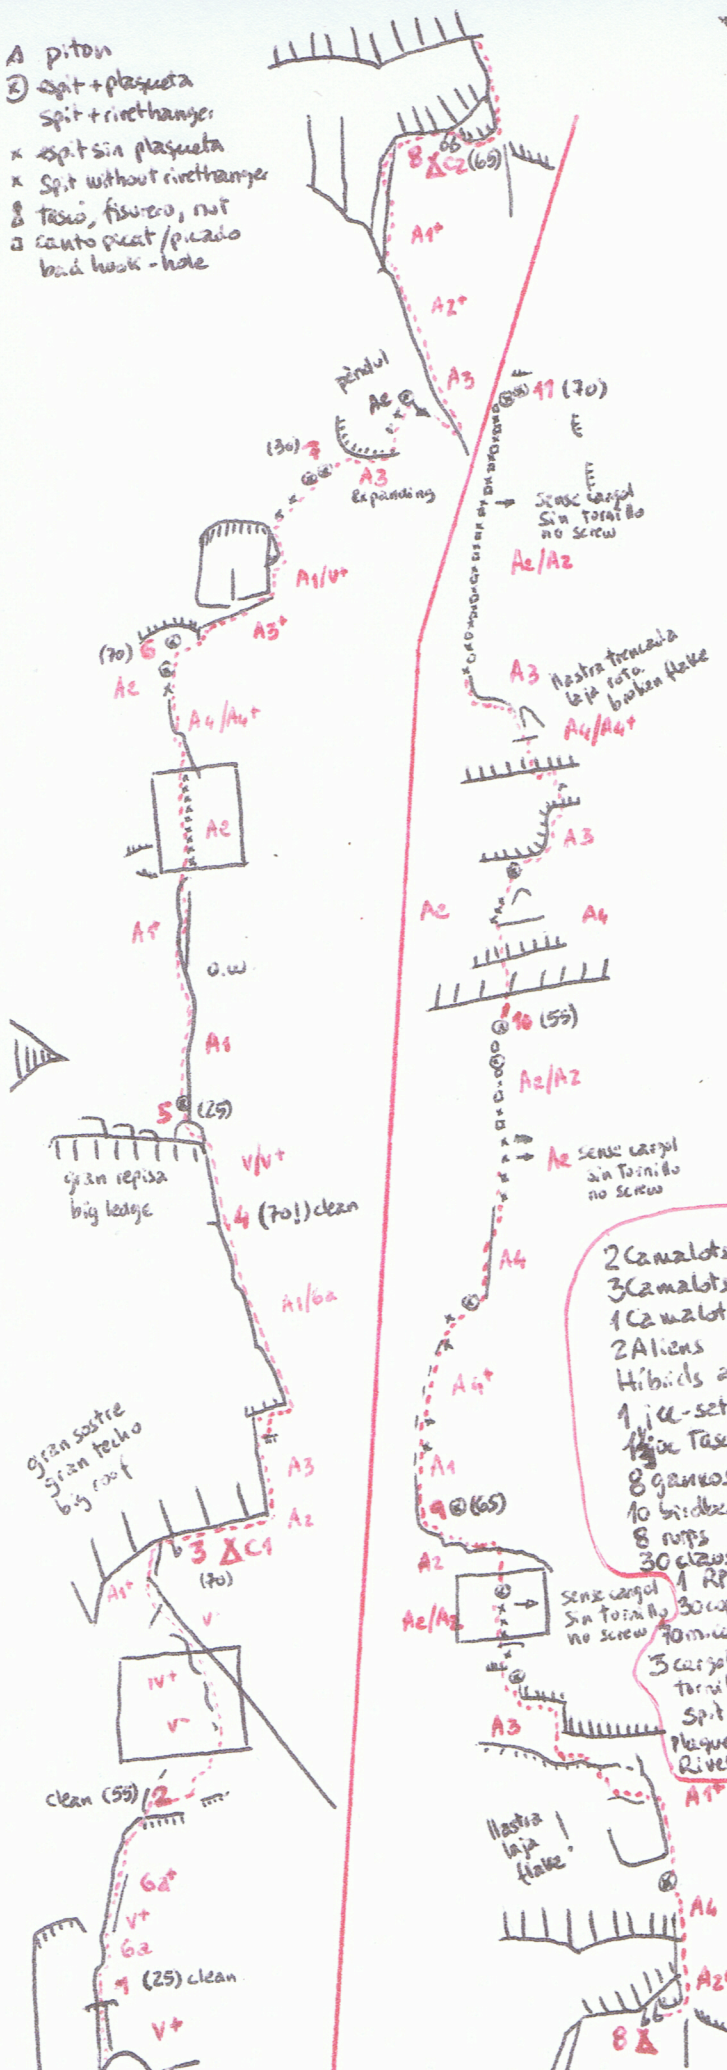 piton
espit + plaqueta
Spit + rivethanger
x espit sin plaqueta
x Spit without rivethanger
tascó, fisurero, nut
canto picat/picado
bad hook-hole
8 C2 (65)
A1+
A2+
A3
pèndul
Ae
(30) 7
A3
expanding
A1/V+
A3+
(70) 6
A2
A4/A4+
A2
A1+
o.w.
A1
5 (25)
V/V+
gran repisa
big ledge
4 (70!) clean
A1/6a
gran sostre
gran techo
big roof
A3
A2
3 C1
(70)
A1+
V
IV+
V-
clean (55) 2
6a+
V+
6a
1 (25) clean
V+
11 (70)
sense cargol
sin tornillo
no screw
Ae/A2
A3
llastra trencada
laja rota
broken flake
A4/A4+
A3
Ae
A4
10 (55)
Ae/A2
Ae sense cargol
sin tornillo
no screw
A4
A4+
A1
9 (65)
A2
Ae/A2
sense cargol
sin tornillo
no screw
A3
llastra
laja
flake
!
A1+
A4
A2
8
2 Camalots
3 Camalots
1 Camalot
2 Aliens
Hibrids
1 joc-set
8 ganxos
10 birdbe
8 rurps
30 claus
1 RP
30 co
3 cargol
torni
Spit
plaque
Rive